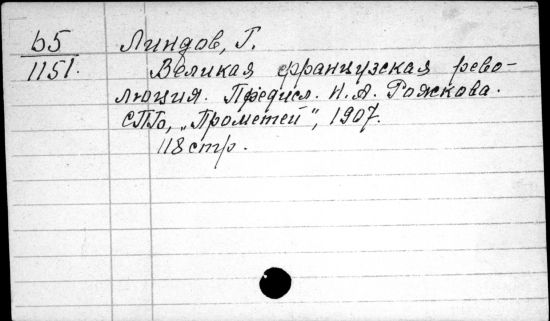 b5
1151.
Линдов, Г.
Великая французская рево-
люция. Предисл. Н. А. Рожкова.
СПб, „Прометей", 1907.
118 стр.